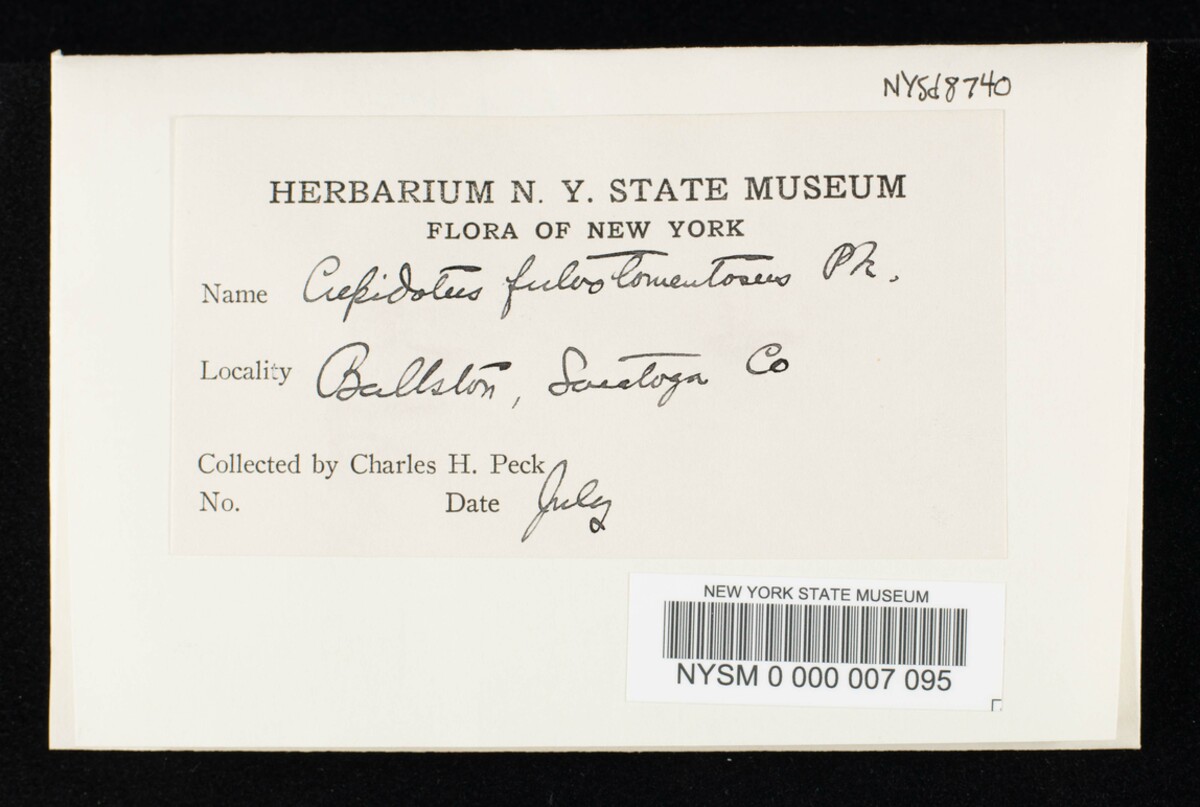 NYSd8740
HERBARIUM N. Y. STATE MUSEUM
FLORA OF NEW YORK
Name Crepidotus fulvotomentosus Pk.
Locality Ballston, Saratoga Co
Collected by Charles H. Peck
No. Date July
NEW YORK STATE MUSEUM
NYSM 0 000 007 095